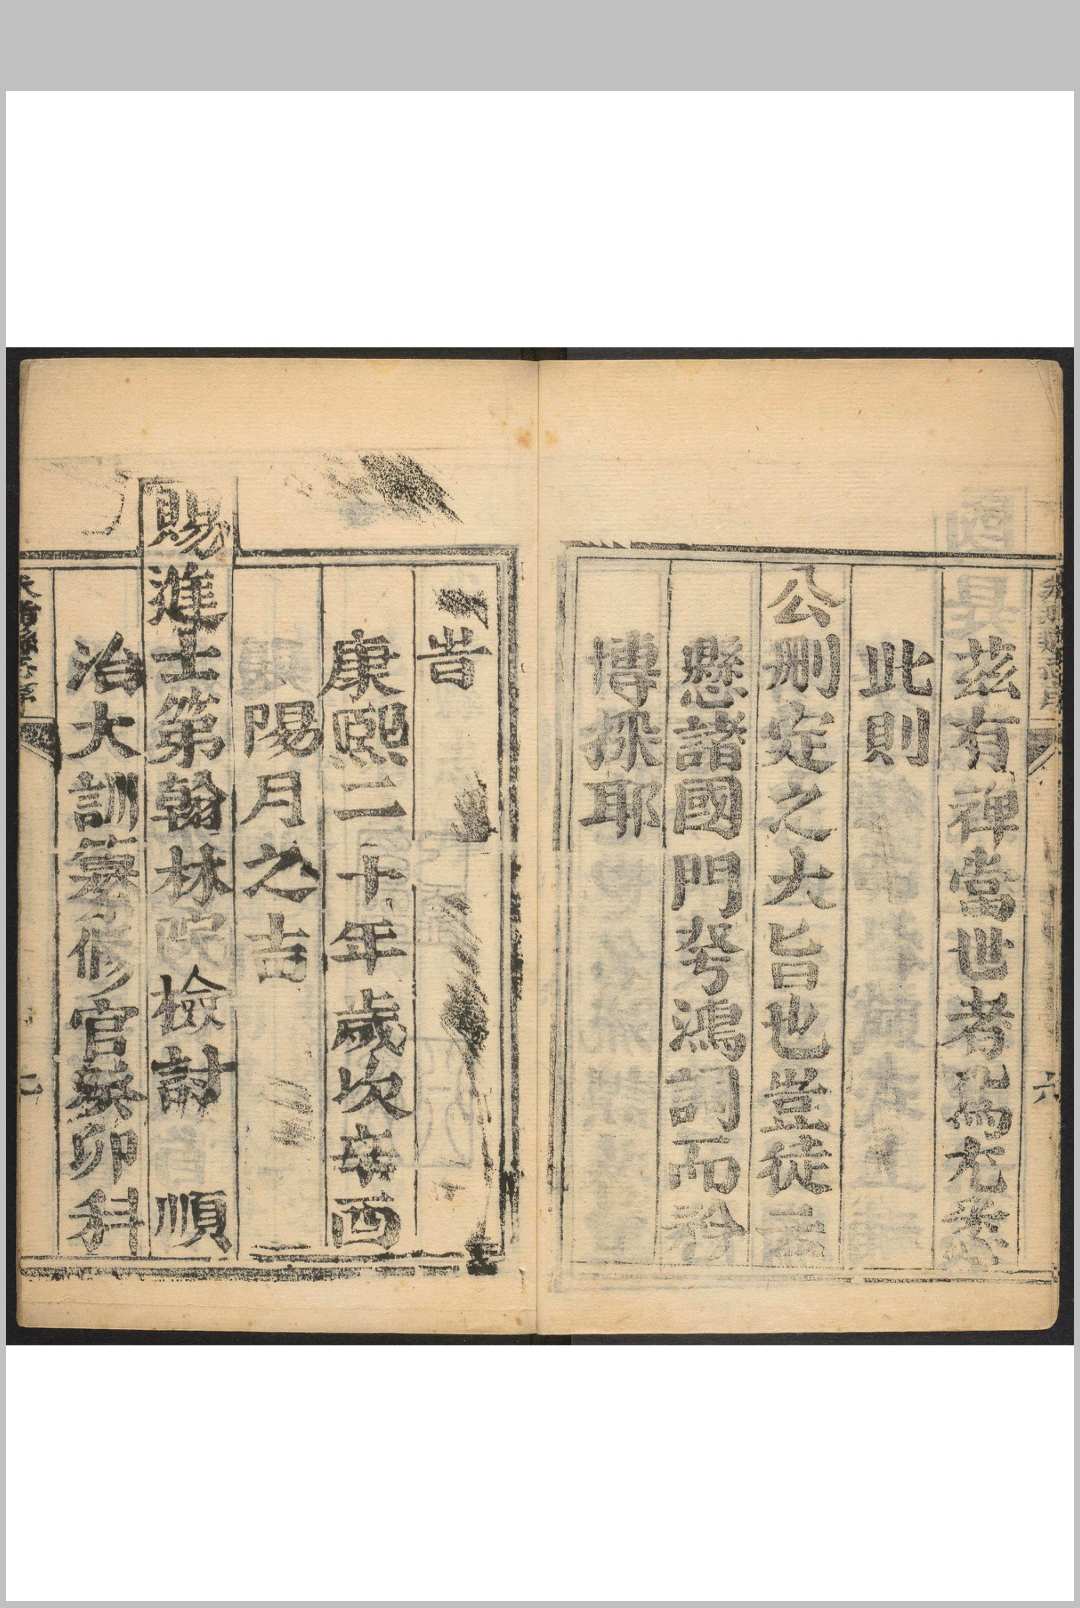 茲有裨當世者為尤
此則
公刪定之大旨也豈徒
懸諸國門矜鴻詞而
博採耶
六
昔
康熙二十年歲次辛酉
陽月之吉
賜進士第翰林院檢討順
治大訓纂修官癸卯科